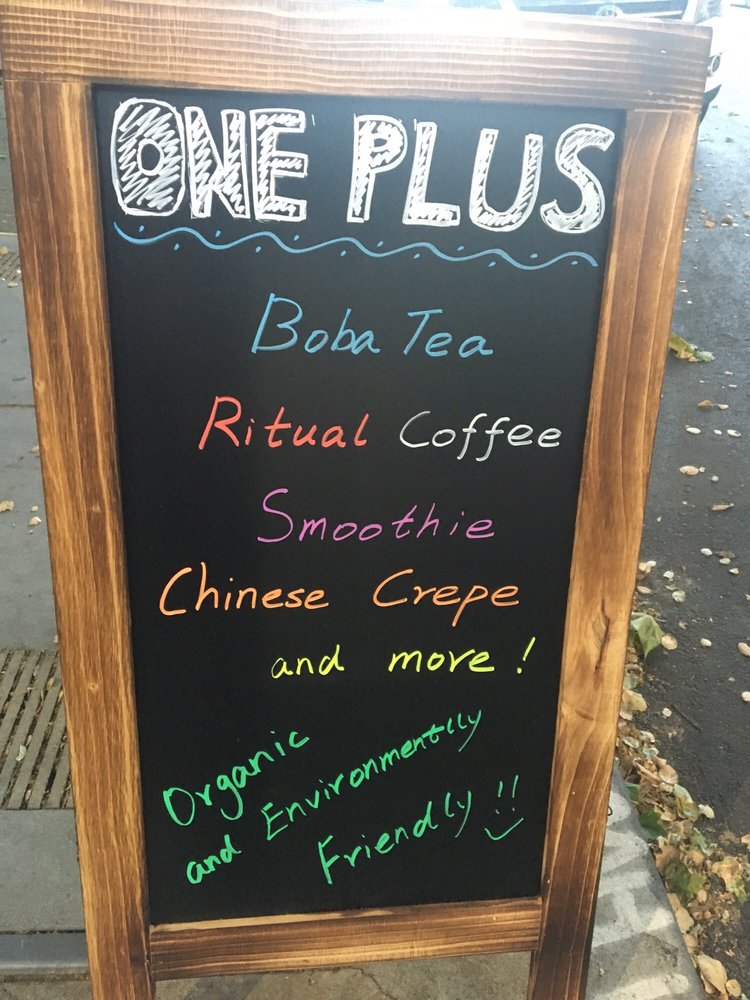 ONE PLUS
Boba Tea
Ritual Coffee
Smoothie
Chinese Crepe
and more!
Organic
and Environmentlly
Friendly!!